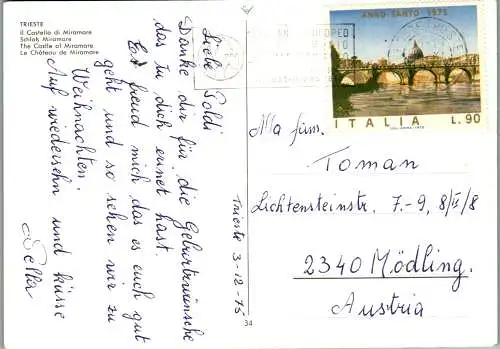 TRIESTE
Il Castello di Miramare
Schloß Miramare
The Castle of Miramare
Le Château de Miramare
Liebe Poldi
Danke dir für die Geburtswünsche
das du dich erinet hast.
Est freud mich das es euch gut
geht und so sehen wir zu
Weihnachten.
Auf wiedersehn und küsse
Trieste 3-12-75
34
ANNO SANTO 1975
ITALIA L.90
Alla fam.
Toman
Lichtensteinstr. 7-9, 8/II/8
2340 Mödling.
Austria